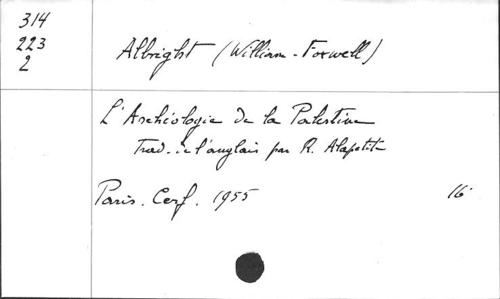 314
223
2
Albright (William-Foxwell)
L'Archéologie de la Palestine
Trad. de l'anglais par R. Alapetite
Paris. Cerf. 1955
16